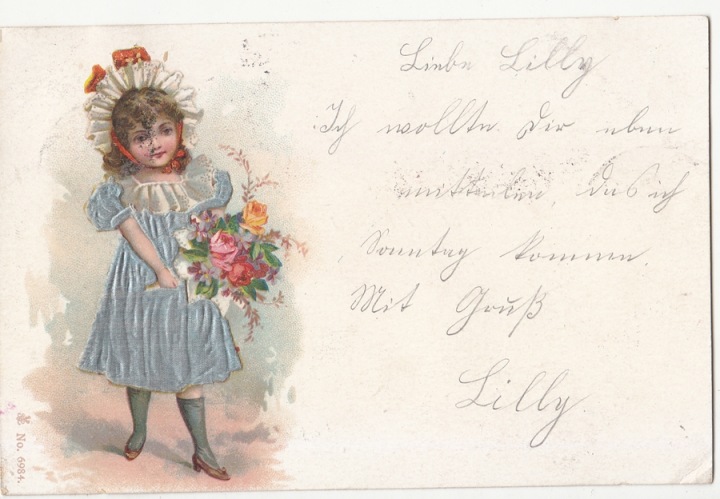 Liebe Lilly
Ich wollte Dir eben
mitteilen, das ich
Sonntag komme.
Mit Gruß
Lilly.
No. 6984.